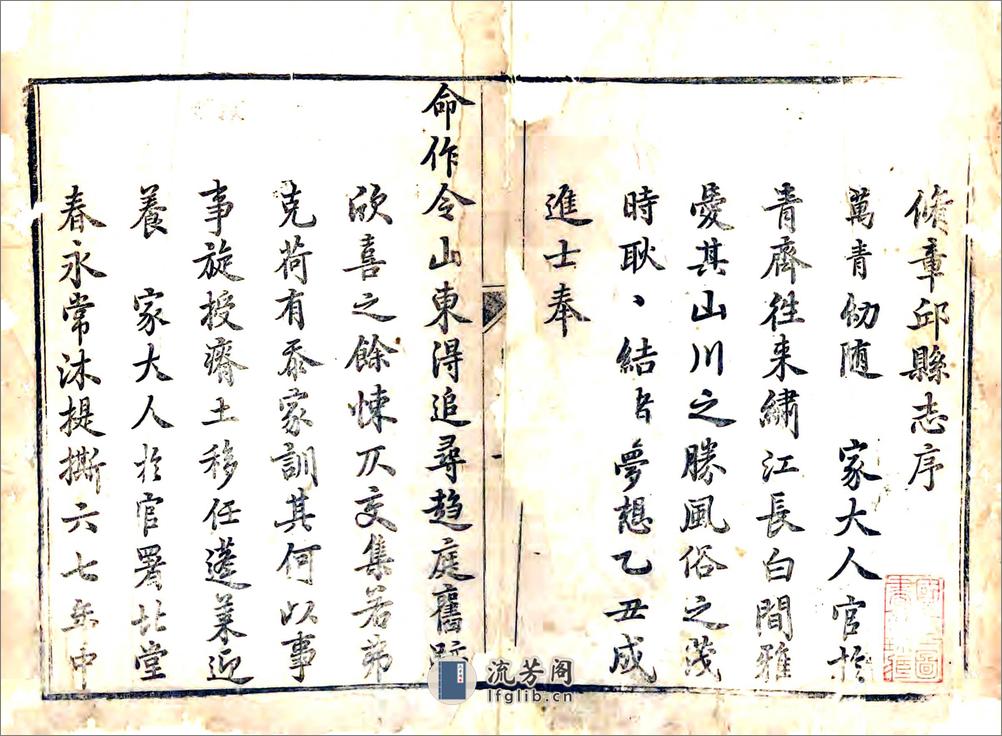 脩章邱縣志序
萬青幼随 家大人官於
青齊往来繡江長白間雅
愛其山川之勝風俗之茂
時耿丶結夢想乙丑成
進士奉
命作令山東得追尋趋庭舊跡
欣喜之餘悚仄交集若弗
克荷有忝家訓其何以事
事旋授瘠土移任蓬莱迎
養 家大人於官署北堂
春永常沐提撕六七年中
流芳阁
lfglib.cn